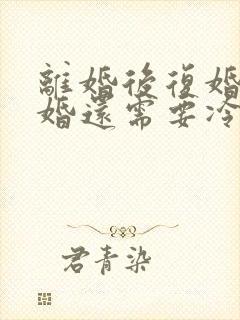 離婚後復婚
婚還需要冷
君青染